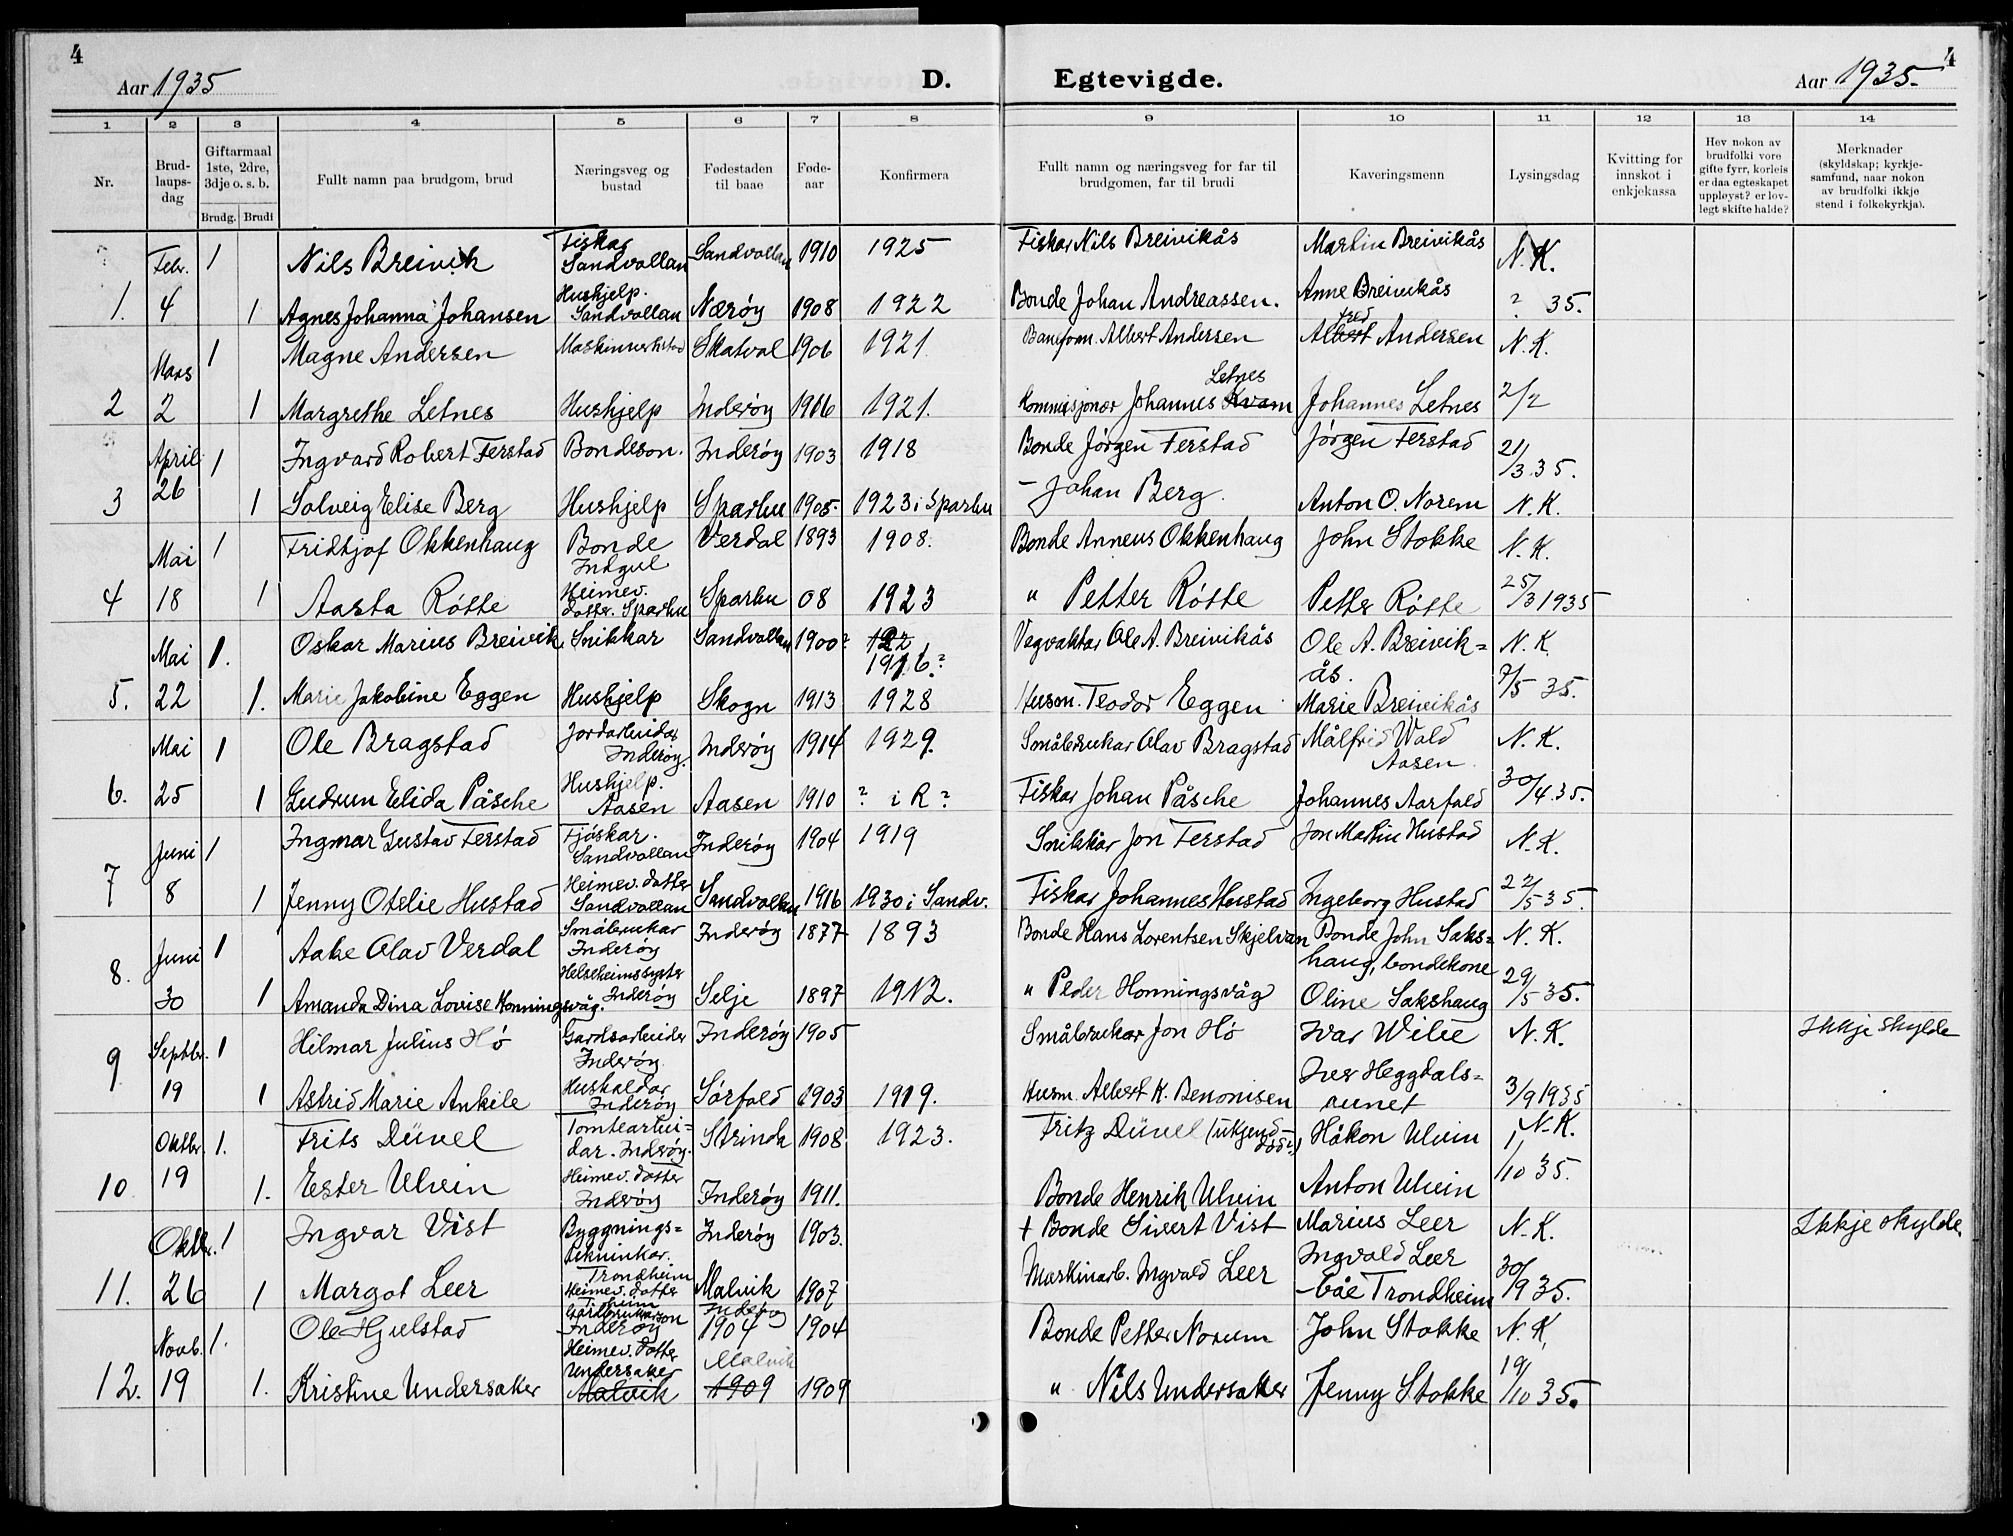 4
Aar 1935
D. Egtevigde.
Aar 1935.
4
1 2 3 4 5 6 7 8 9 10 11 12 13 14
Nr.
Brud-laups-dag
Giftarmaal 1ste, 2dre, 3dje o. s. b.
Brudg. Brudi
Fullt namn paa brudgom, brud
Næringsveg og bustad
Fødestaden til baae
Føde-aar
Konfirmera
Fullt namn og næringsveg for far til brudgomen, far til brudi
Kaveringsmenn
Lysingsdag
Kvitting for innskot i enkjekassa
Hev nokon av brudfolki vore gifte fyrr, korleis er daa egteskapet uppløyst? er lov-legt skifte halde?
Merknader (skyldskap; kyrkje-samfund, naar nokon av brudfolki ikkje stend i folkekyrkja).
Febr. 1 Nils Breivik Fiskar Sandvollan Sandvollan 1910 1925 Fiskar Nils Breivikås Martin Breivikås N.K.
1. 4 1 Agnes Johanna Johansen Hushjelp. Sandvollan Nærøy 1908 1922 Bonde Johan Andreassen. Anne Breivikås ? 35.
Mars 1 Magne Andersen Skatval 1906 1921. Albert Andersen Albert fred Andersen N.K.
2 2 1 Margrethe Letnes Hushjelp Inderøy 1906 1921. Kommisjonær Johannes Kvam Letnes Johannes Letnes 2/2
April 1 Ingvard Robert Ferstad Bondeson. Inderøy 1903 1918 Bonde Jørgen Ferstad Jørgen Ferstad 21/3.35.
3 26 1 Solveig Elise Berg Hushjelp Sparbu 1905. 1923 i Sparbu – Johan Berg. Anton O. Norem N.K.
Mai 1 Fridtjof Okkenhaug Bonde Verdal 1893 1908. Bonde Anneus Okkenhaug John Stokke N.K.
4 18 1 Aasta Røtte Heimev. dotter. Sparbu Sparbu 08 1923 " Petter Røtte Petter Røtte 25/3 1935
Mai 1. Oskar Marius Breivik Snikkar Sandvollan 1900? 192 1916? Vegvaktar Ole A. Breivikås Ole A. Breivik=ås. N.K.
5. 22 1. Marie Jakobine Eggen Hushjelp Skogn 1913 1928 Husm. Teodor Eggen Marie Breivikås 7/5 35.
Mai 1 Ole Bragstad Jordarbeidar Inderøy. Inderøy 1914 1929. Småbrukar Olav Bragstad Målfrid Wold Aasen N.K.
6. 25 1 Gudrun Elida Påsche Hushjelp. Aasen Aasen 1910 ? i R? Fiskar Johan Påsche Johannes Aarfald 30/4.35.
Juni 1 Ingmar Gustav Ferstad Fjøskar. Sandvollan Inderøy 1904 1919 Snikkar Jon Ferstad Jon Martin Hustad N.K.
7 8 1 Jenny Otelie Hustad Heimev. dotter Sandvollan Sandvollan 1916 1930 i Sandv. Fiskar Johannes Hustad Ingeborg Hustad 22/5 35.
Juni 1 Aake Olav Verdal Småbrukar Inderøy Inderøy 1877 1893 Bonde Hans Lorentsen Skjelvan Bonde John Saks=haug, bondekone N.K.
8. 30 1 Amanda Dina Lovise Honningsvåg. Helseheimssyster Inderøy Selje 1897 1912. " Peder Honningsvåg Oline Sakshaug 29/5 35.
Septbr. 1 Hilmar Julius Hø Gardsarbeider Inderøy Inderøy 1905 Småbrukar Jon Hø Ivar Wilie N.K. Ikkje skylde
9 19 1 Astrid Marie Ankile Hushaldar Inderøy Sørfold 1903 1919. Husm. Albert K. Benonisen Iver Heggdals=aunet 3/9 1935
Oktbr. 1. Frits Düvel Tomtearbei=dar. Inderøy. Strinda 1908 1923. Fritz Düvel (ukjend-død?) Håkon Ulvin N.K.
10 19 1. Ester Ulvin Heimev. dotter Inderøy Inderøy 1911. Bonde Henrik Ulvin Anton Ulvin 1/10 35.
Oktbr. 1 Ingvar Vist Byggnings=teknikar. Trondheim Inderøy 1903. + Bonde Sivert Vist Marius Leer N.K. Ikkje skylde.
11. 26 1 Margot Leer Heimev. dotter Malvik 1907 Maskinarb. Ingvald Leer Ingvald Leer båe Trondheim 30/9 35.
Novb. 1. Ole Hjelstad Gardbrukarson Inderøy Inderøy 1904 1904 Bonde Petter Norum John Stokke N.K.
12. 19 1. Kristine Undersaker Heimev. dotter Undersaker Malvik Malvik 1909 1909 " Nils Undersaker Jenny Stokke 19/10 35.